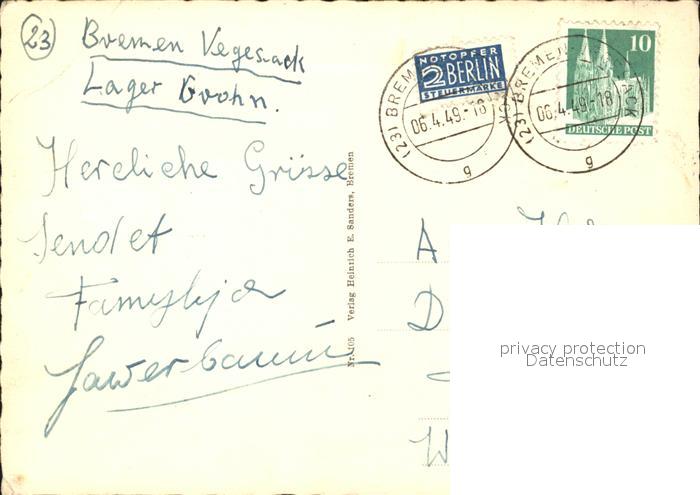 23
Bremen Vegesack
Lager Grohn.
Hercliche Grüsse
Sendet
Famyslija
Sawerbaum
Nr. 105 Verlag Heinrich E. Sanders, Bremen
NOTOPFER
2 BERLIN
STEUERMARKE
(23) BREM
06.4.49.-18
g
10
DEUTSCHE POST
(23) BREMEN
06.4.49.-18
g
A
D
W
privacy protection
Datenschutz